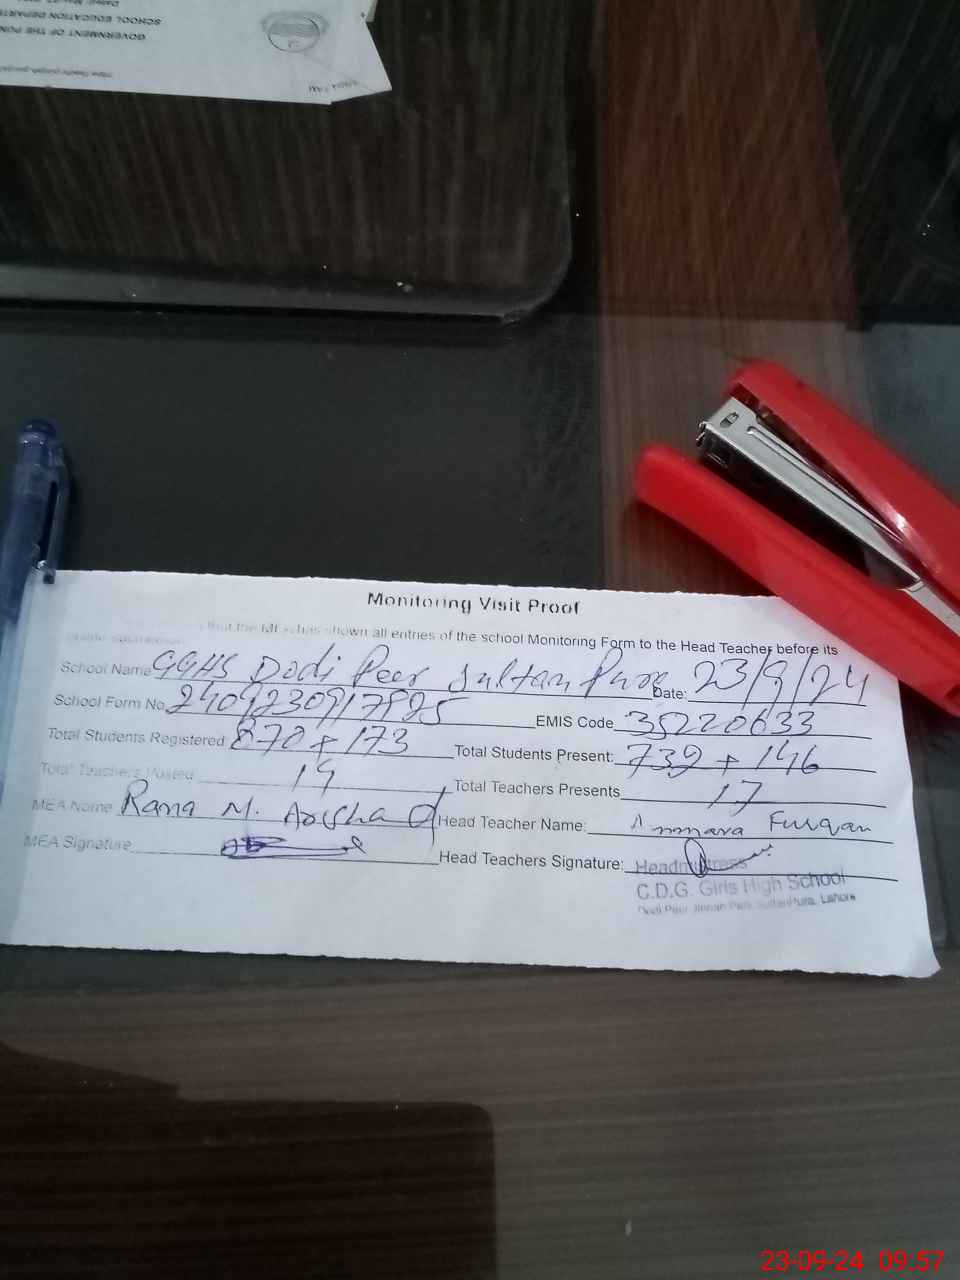 GOVERNMENT OF THE PUN
SCHOOL EDUCATION DEPART
Monitoring Visit Proof
that the has shown all entries of the school Monitoring Form to the Head Teacher before its
School Name GGHS Dodi Peer Sultan Pura Date: 23/9/24
School Form No. EMIS Code 35220633
Total Students Registered: 870 + 173 Total Students Present: 739 + 146
Total Teachers Posted 19 Total Teachers Presents 17
MEA Name Rana M. Arshad Head Teacher Name: Ammara Furqan
MEA Signature Head Teachers Signature:
Headmistress
C.D.G. Girls High School
Lahore
23-09-24 09:57